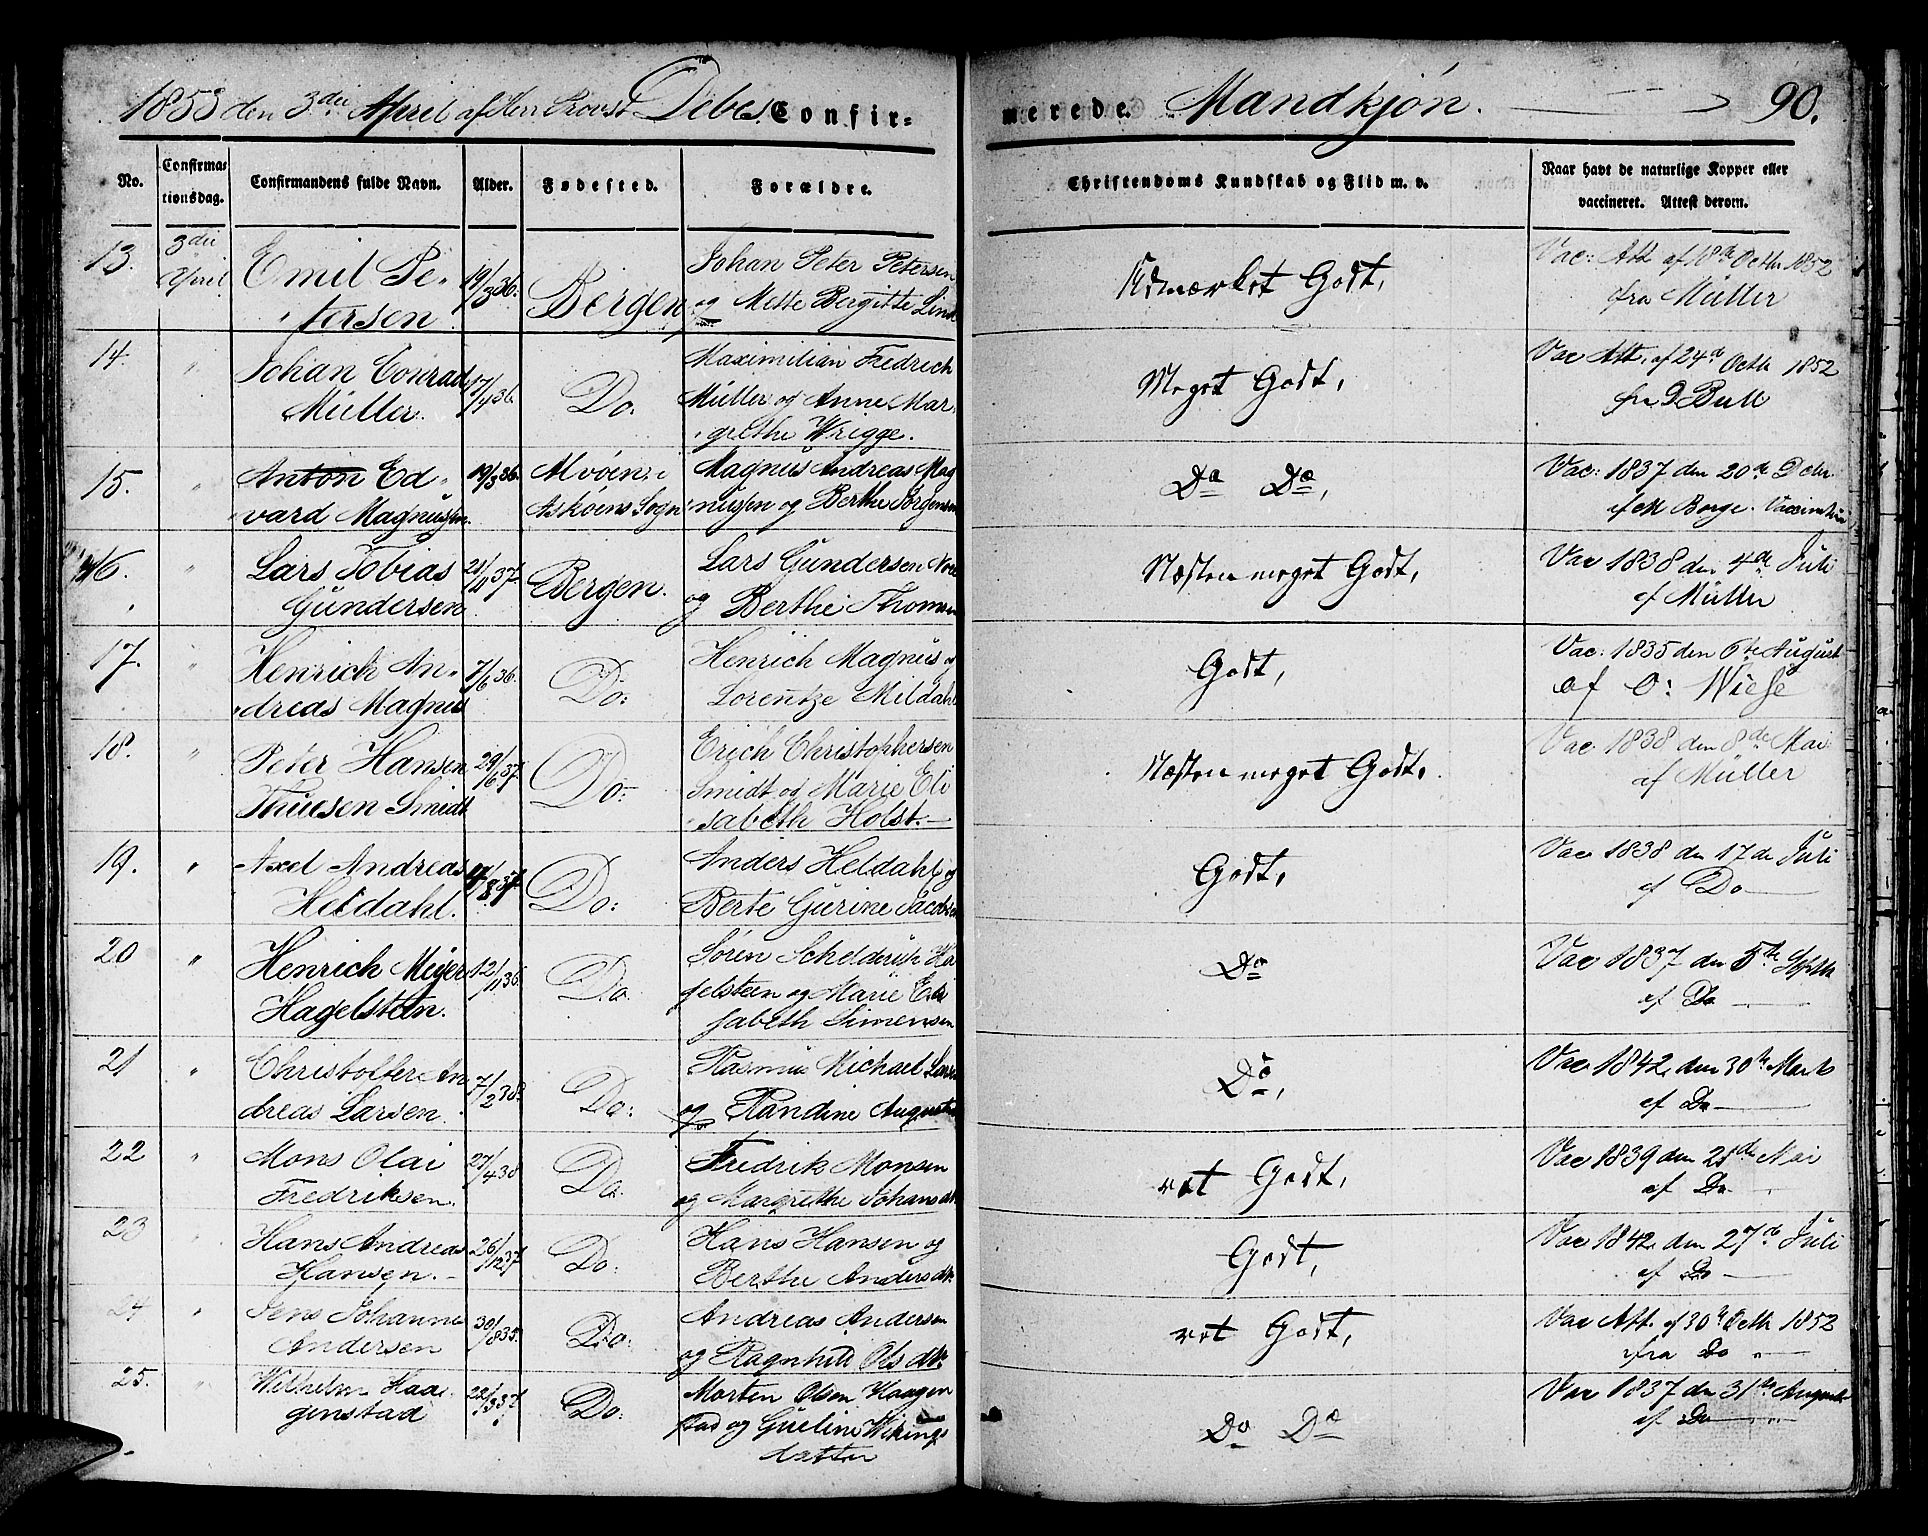 1853 den 3die April af Herr Provst Debes. Confir=
merede. Mandkjøn. 90.
No.
Confirma=
tionsdag.
Confirmandens fulde Navn.
Alder.
Fødested.
Forældre.
Christendoms Kundskab og Flid m. v.
Naar havt de naturlige Kopper eller
vaccineret. Attest derom.
13. 3die April Emil Pe-
tersen 19/3 36. Bergen
Johan Peter Petersen
og Mette Bergitte Lind
Udmærket Godt,
Vac: Att. af 18de Octbr 1852
fra Müller
14. " Johan Conrad
Müller. 17/4 36. Do.
Maximilian Fredrich
Müller og Anne Mar-
grethe Wrigge.
Meget Godt,
Vac Att. af 24de Octbr 1852
fra D Bull
15. " Anton Ed-
vard Magnusen. 19/3 36. Alvøen i
Askøens Sogn
Magnus Andreas Mag
nusen og Berthe Jørgensen
Do Do,
Vac: 1837 den 20de
af M Borge. Vaccinateur
16. " Lars Tobias
Gundersen 21/11 37. Bergen.
Lars Gundersen
og Berthe Thomsen
Næsten meget Godt,
Vac 1838 den 4de Juli
af Müller
17. " Henrich An-
dreas Magnus 7/6 36. Do:
Henrich Magnus og
Lorentze Mildahl
Godt,
Vac: 1835 den 6te August
af O: Wiese
18. " Peter Hansen
Thuesen Smidt 29/6 37. Do:
Erich Christophersen
Smidt og Marie Eli
sabeth Holst.
Næsten meget Godt.
Vac. 1838 den 8de Mai
af Müller
19. " Axel Andreas
Heldahl. 4/8 37. Do:
Anders Heldahl og
Berte Gurine Jacobsen
Godt,
Vac 1838 den 17de Juli
af Do
20 " Henrich Meyer
Hagelsteen. 12/11 36. Do
Søren Schelderub Ha
gelsteen og Marie Eli
sabeth Simensen
Do
Vac 1837 den 5te Septbr
af Do
21 " Christoffer An
dreas Larsen. 7/2 38. Do:
Rasmus Michael Larsen
og Randine Augusta
Do,
Vac 1842 den 30te Marts
af Do
22 " Mons Olai
Fredriksen. 27/4 38 Do.
Fredrik Monsen
og Margrethe Johansdtr
ret Godt,
Vac 1839 den 21de Mai
af Do
23 " Hans Andreas
Hansen. 26/12 37. Do:
Hans Hansen og
Berthe Andersdtr
Godt,
Vac 1842 den 27de Juli
af Do
24 " Jens Johannes
Andersen 30/8 35. Do:
Andreas Andersen
og Ragnhild Olsdtr
ret Godt,
Vac Att. af 30te Octbr 1852
fra Do
25. " Wilhelm Haa-
genstad 22/3 37. Do:
Morten Olsen Haagen
stad og Gueline Wikings
datter
Do Do
Vac 1837 den 31te August
af Do